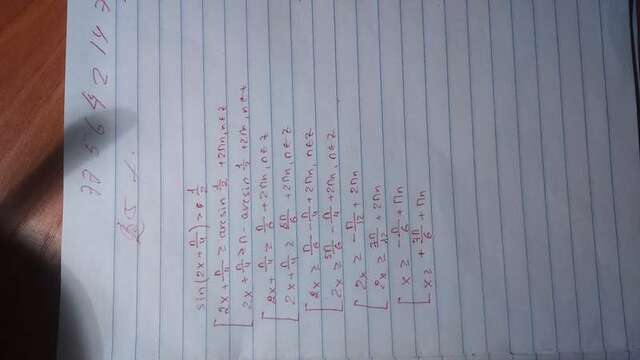 77 5 6 4 2 14 7
sin(2x + π/4) ≥ 1/2
[ 2x + π/4 ≥ arcsin 1/2 + 2πn, n ∈ z
2x + π/4 ≥ π - arcsin 1/2 + 2πn, n ∈ z
[ 2x + π/4 ≥ π/6 + 2πn, n ∈ z
2x + π/4 ≥ 5π/6 + 2πn, n ∈ z
[ 2x ≥ π/6 - π/4 + 2πn, n ∈ z
2x ≥ 5π/6 - π/4 + 2πn, n ∈ z
[ 2x ≥ -π/12 + 2πn
2x ≥ 7π/12 + 2πn
[ x ≥ -π/6 + πn
x ≥ + 7π/6 + πn